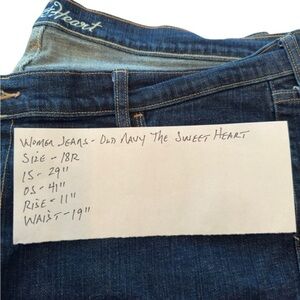 Heart
Women Jeans - Old Navy The Sweet Heart
Size - 18R
IS - 29"
OS - 41"
Rise - 11"
Waist - 19"